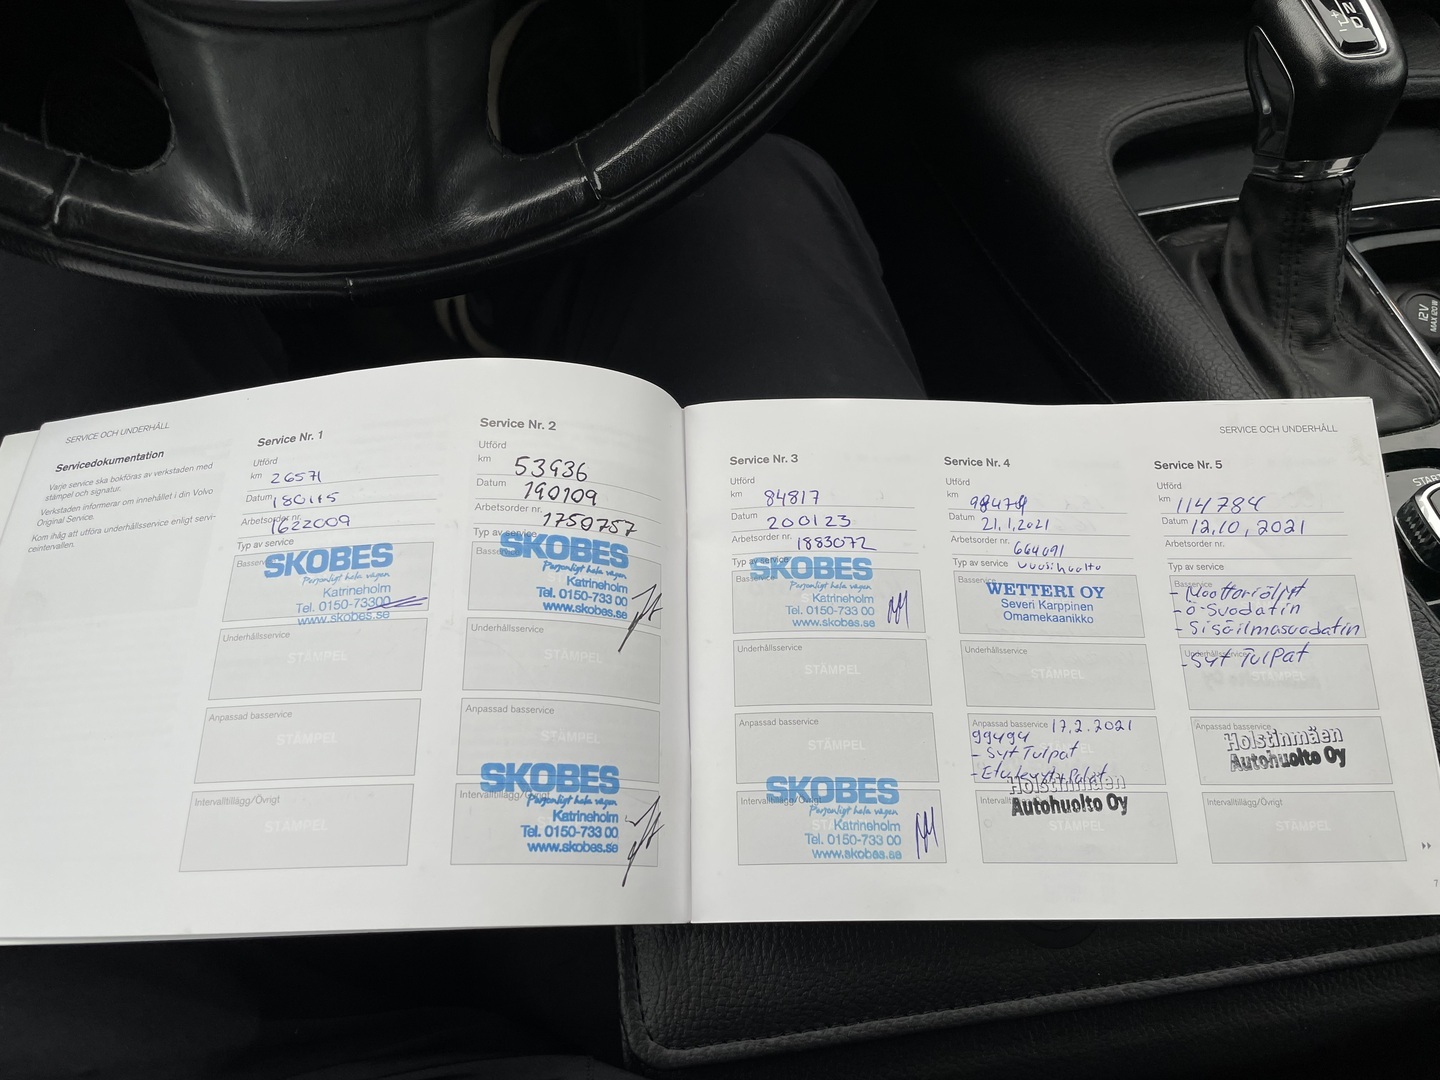 N
D
+
-
12V
MAX 120 W
START
SERVICE OCH UNDERHÅLL
Servicedokumentation
Varje service ska bokföras av verkstaden med
stämpel och signatur.
Verkstaden informerar om innehållet i din Volvo
Original Service.
Kom ihåg att utföra underhållsservice enligt servi-
ceintervallen.
Service Nr. 1
Utförd
km 26571
Datum 180115
Arbetsorder nr. 1622009
Typ av service
Basservice
SKOBES
Personligt hela vägen
Katrineholm
Tel. 0150-73300
www.skobes.se
Underhållsservice
STÄMPEL
Anpassad basservice
STÄMPEL
Intervalltillägg/Övrigt
STÄMPEL
Service Nr. 2
Utförd
km 53936
Datum 190109
Arbetsorder nr. 1750757
Typ av service
SKOBES
Personligt hela vägen
Katrineholm
Tel. 0150-733 00
www.skobes.se
Underhållsservice
STÄMPEL
Anpassad basservice
STÄMPEL
SKOBES
Intervalltillägg/Övrigt
Personligt hela vägen
Katrineholm
Tel. 0150-733 00
www.skobes.se
Service Nr. 3
Utförd
km 84817
Datum 200123
Arbetsorder nr. 1883072
Typ av service
SKOBES
Basservice
Personligt hela vägen
Katrineholm
Tel. 0150-733 00
www.skobes.se
Underhållsservice
STÄMPEL
Anpassad basservice
STÄMPEL
SKOBES
Intervalltillägg/Övrigt
Personligt hela vägen
Katrineholm
Tel. 0150-733 00
www.skobes.se
SERVICE OCH UNDERHÅLL
Service Nr. 4
Utförd
km
Datum 21.1.2021
Arbetsorder nr. 664091
Typ av service Vuosihuolto
Basservice
WETTERI OY
Severi Karppinen
Omamekaanikko
Underhållsservice
STÄMPEL
Anpassad basservice 17.2.2021
99494
- Syt Tulpat
Holstinmäen
Autohuolto Oy
Service Nr. 5
Utförd
km 114784
Datum 12.10, 2021
Arbetsorder nr.
Typ av service
Basservice
- Moottoriöljyt
- Ö-Suodatin
- Sisäilmasuodatin
Underhållsservice
- Syt Tulpat
STÄMPEL
Anpassad basservice
Holstinmäen
Autohuolto Oy
Intervalltillägg/Övrigt
STÄMPEL
7